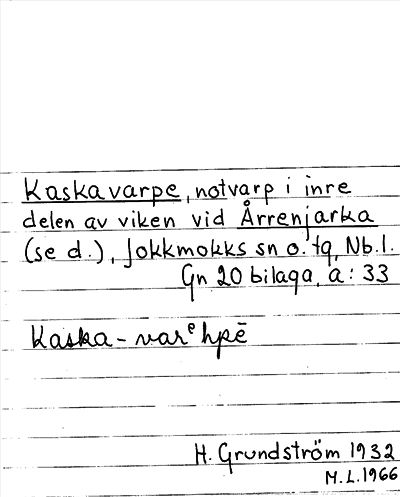 Kaskavarpe, notvarp i inre
delen av viken vid Årrenjarka
(se d.), Jokkmokks sn o. tg, Nb. l.
Gn 20 bilaga, a: 33
Kaska-varᵉhpē
H. Grundström 1932
M.L. 1966